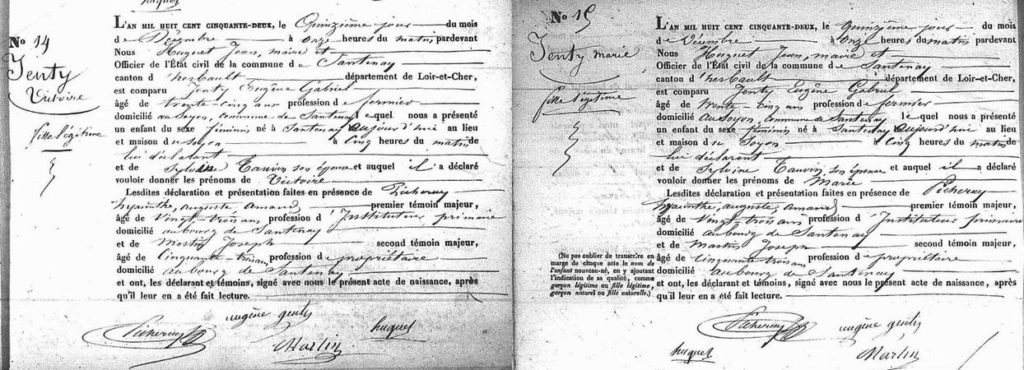 huguet
No 14
Jenty
Victoire
fille légitime
L'AN MIL HUIT CENT CINQUANTE-DEUX, le Quinzième jour du mois
de Décembre à Onze heures du matin pardevant
Nous Huguet Jean, maire et
Officier de l'État civil de la commune de Santenay
canton d'herbault département de Loir-et-Cher,
est comparu Jenty Eugène Gabriel
âgé de trente-cinq ans profession de fermier
domicilié au Soyon, commune de Santenay lequel nous a présenté
un enfant du sexe féminin né à Santenay aujourd'hui au lieu
et maison de Soyon à Cinq heures du matin
lui déclarant
et de Sylvine Cauvin son épouse et auquel il a déclaré
vouloir donner les prénoms de Victoire
Lesdites déclaration et présentation faites en présence de Picheray
hyacinthe, auguste, amand premier témoin majeur,
âgé de Vingt-trois ans profession d'Instituteur primaire
domicilié au bourg de Santenay
et de Martin Joseph second témoin majeur,
âgé de Cinquante-trois ans profession de propriétaire
domicilié au bourg de Santenay
et ont, les déclarant et témoins, signé avec nous le présent acte de naissance, après
qu'il leur en a été fait lecture.
Picheray
eugène genty
Martin
huguet
No 15
Jenty marie
fille légitime
L'AN MIL HUIT CENT CINQUANTE-DEUX, le Quinzième jour du mois
de Décembre à Onze heures du matin pardevant
Nous Huguet Jean, maire et
Officier de l'État civil de la commune de Santenay
canton d'herbault département de Loir-et-Cher,
est comparu Jenty Eugène Gabriel
âgé de trente-cinq ans profession de fermier
domicilié au Soyon, commune de Santenay lequel nous a présenté
un enfant du sexe féminin né à Santenay aujourd'hui au lieu
et maison de Soyon à Cinq heures du matin
lui déclarant
et de Sylvine Cauvin son épouse et auquel il a déclaré
vouloir donner les prénoms de Marie
Lesdites déclaration et présentation faites en présence de Picheray
hyacinthe, auguste, amand premier témoin majeur,
âgé de Vingt-trois ans profession d'Instituteur primaire
domicilié au bourg de Santenay
et de Martin Joseph second témoin majeur,
âgé de Cinquante-trois ans profession de propriétaire
domicilié au bourg de Santenay
et ont, les déclarant et témoins, signé avec nous le présent acte de naissance, après
qu'il leur en a été fait lecture.
(Ne pas oublier de transcrire en
marge de chaque acte le nom de
l'enfant nouveau-né, en y ajoutant
l'indication de sa qualité, comme
garçon légitime ou fille légitime,
garçon naturel ou fille naturelle.)
Picheray
eugène genty
huguet
Martin